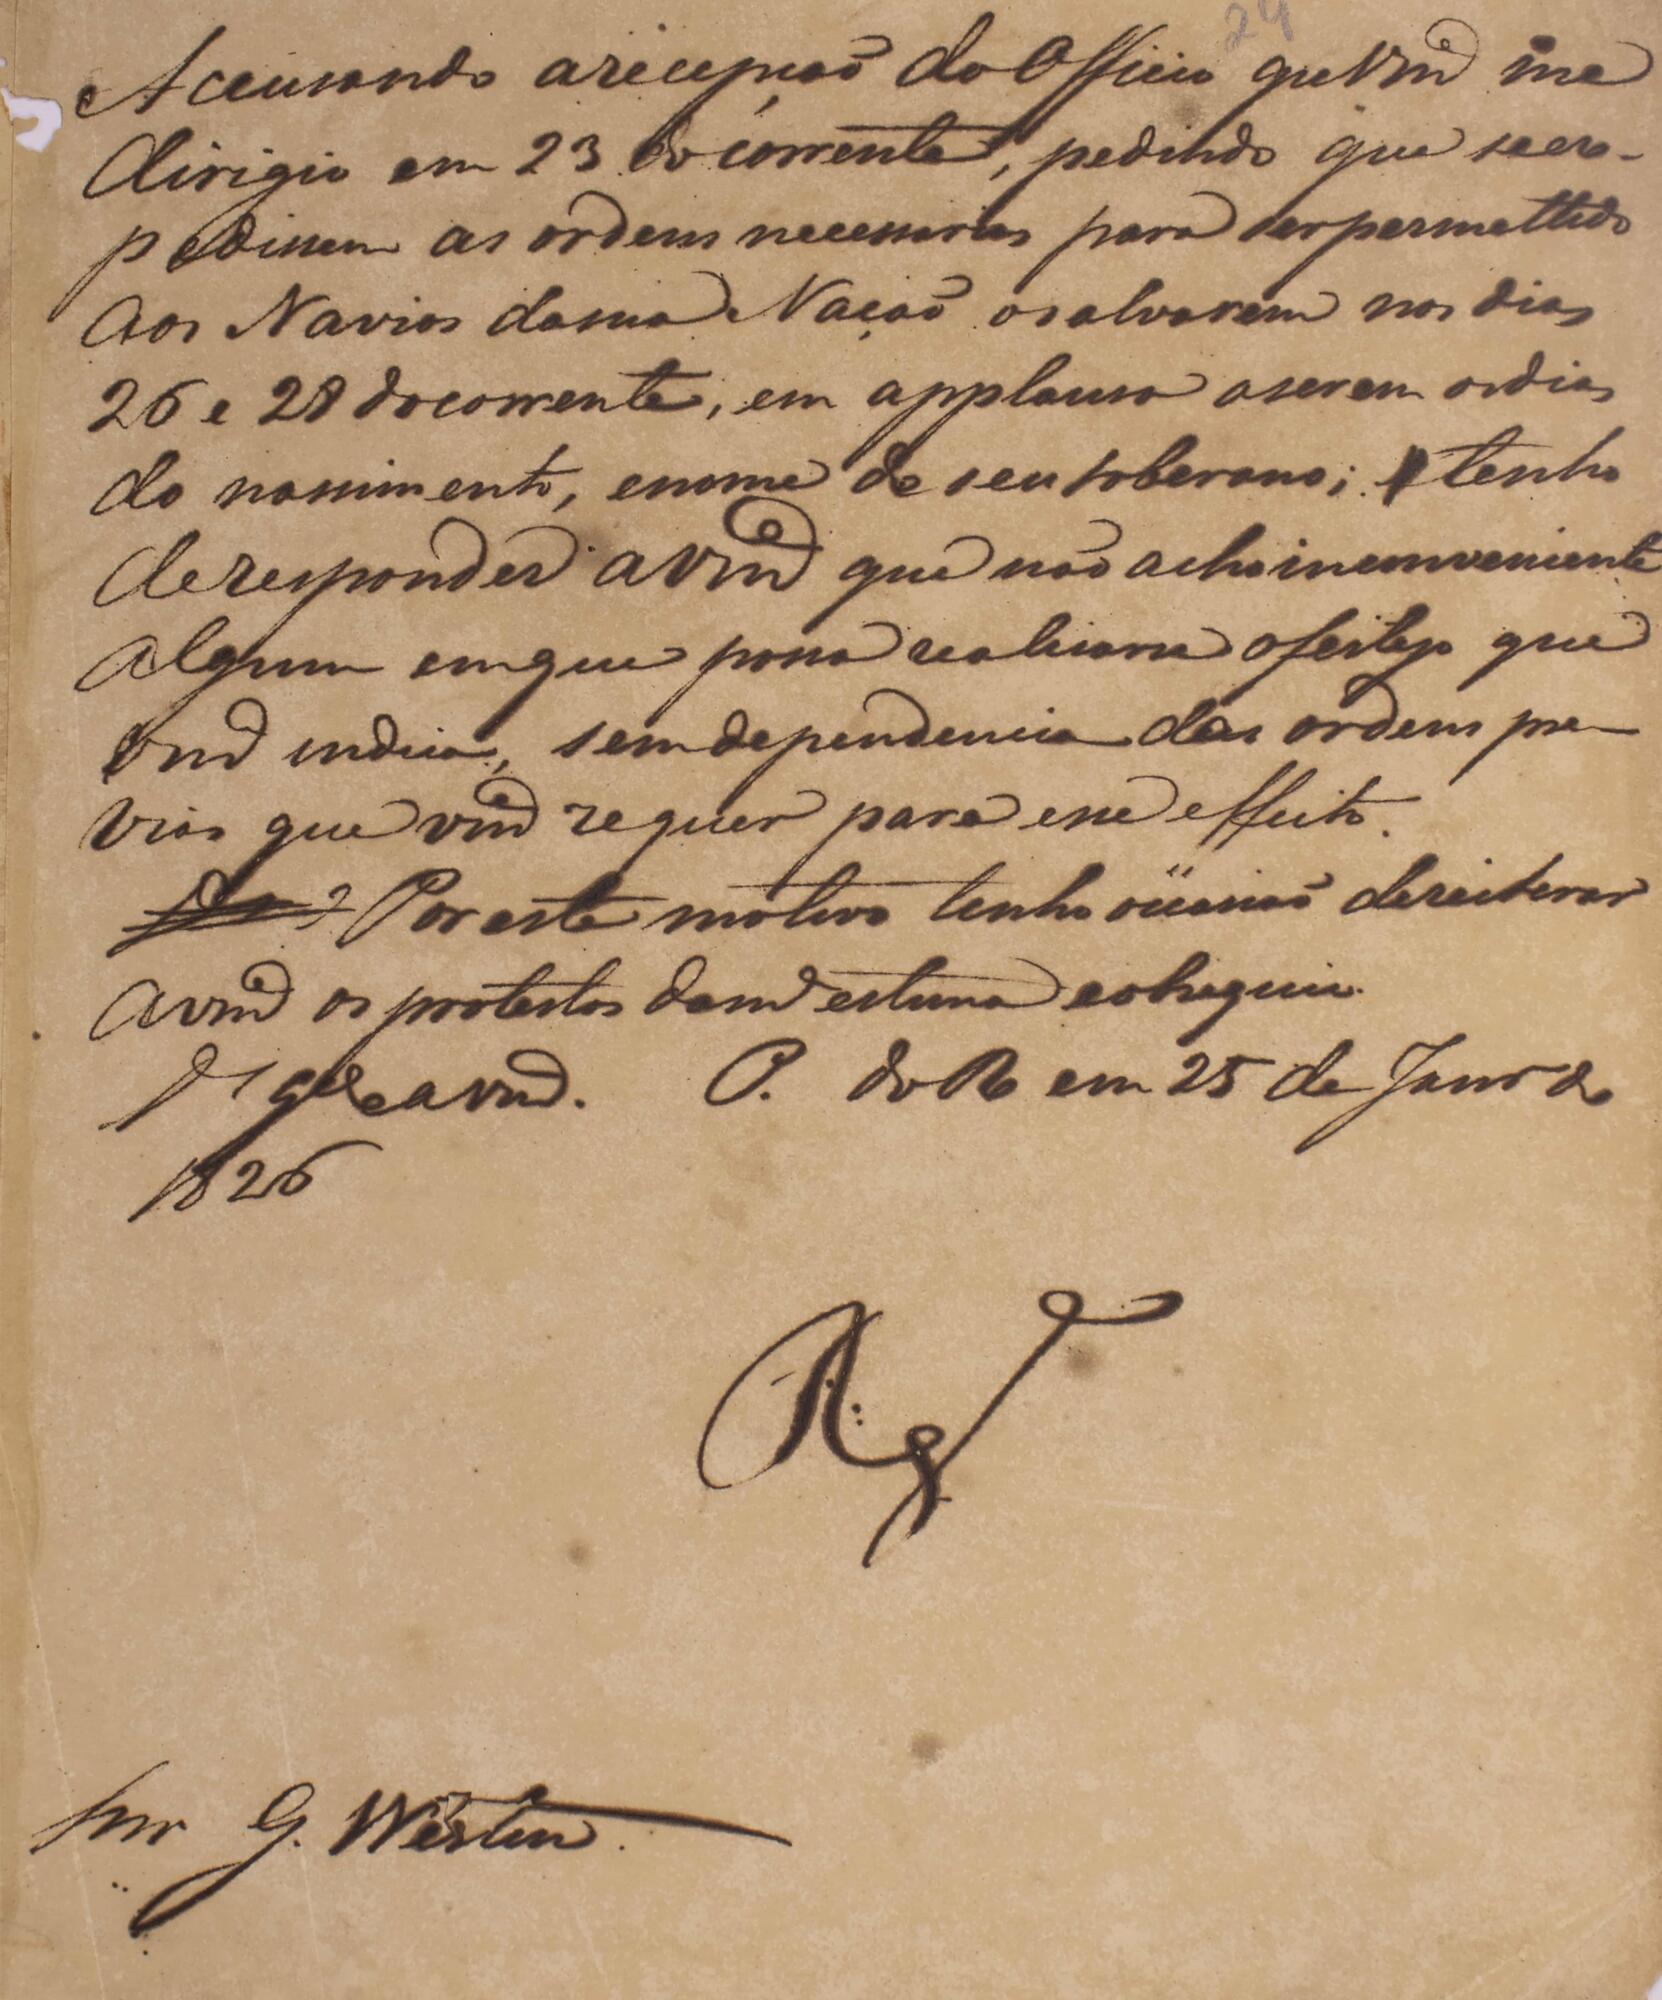 24
Accusando a recepção do Officio que Vmce me
dirigio em 23 do corrente, pedindo que se ex-
pedissem as ordens necessarias para ser permettido
aos Navios da sua Nação o salvarem nos dias
26 e 28 do corrente, em applauso a serem os dias
do nassimento, e nome de seu soberano; tenho
de responder a Vmce que não acho inconveniente
algum em que possa realisarse o festejo que
Vmce indica, sem dependencia das ordens pre-
vias que Vmce requer para esse effeito.
Por este motivo tenho occasião de reiterar
a Vmce os protestos da mª estima e obsequio.
Ds Gde a Vmce. P. do Ro em 25 de Janro de
1826
Snr G. Westin